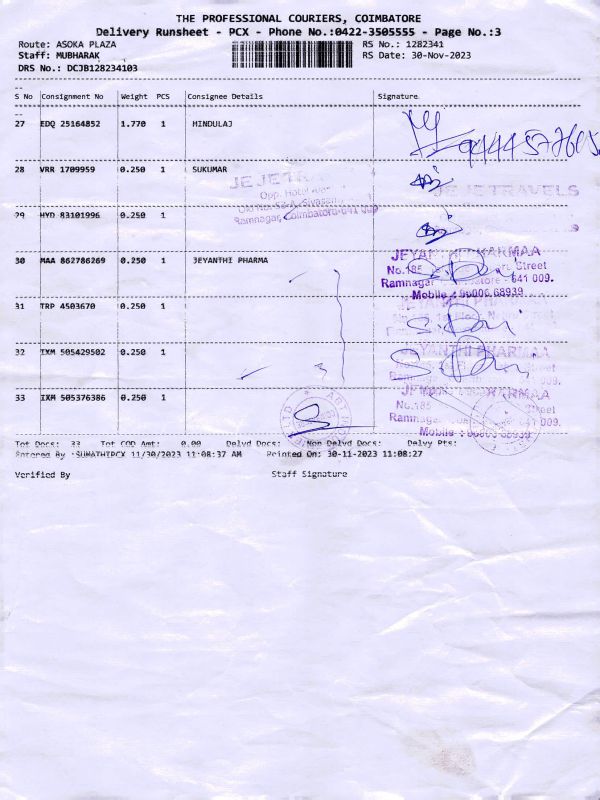 THE PROFESSIONAL COURIERS, COIMBATORE
Delivery Runsheet - PCX - Phone No.:0422-3505555 - Page No.:3
Route: ASOKA PLAZA RS No.: 1282341
Staff: MUBHARAK RS Date: 30-Nov-2023
DRS No.: DCJB128234103
S No Consignment No Weight PCS Consignee Details Signature
27 EDQ 25164852 1.770 1 HINDULAJ
28 VRR 1709959 0.250 1 SUKUMAR
JEJETRAVELS
JEJETRAVELS
29 HYD 83101996 0.250 1
Ramnagar, Coimbatore-641 009
30 MAA 862786269 0.250 1 JEYANTHI PHARMA
JEYANTHI PHARMAA
No.185 Street
Ramnagar, Coimbatore - 641 009.
Mobile : 96006 68939
31 TRP 4503670 0.250 1
32 IXM 505429502 0.250 1
JEYANTHI PHARMAA
33 IXM 505376386 0.250 1
JEYANTHI PHARMAA
No.185 Street
Ramnagar, Coimbatore - 641 009.
Mobile : 96006 68939
Tot Docs: 33 Tot COD Amt: 0.00 Delvd Docs: Non Delvd Docs: Delvy Pts:
Entered By :SUMATHIPCX 11/30/2023 11:08:37 AM Printed On: 30-11-2023 11:08:27
Verified By Staff Signature